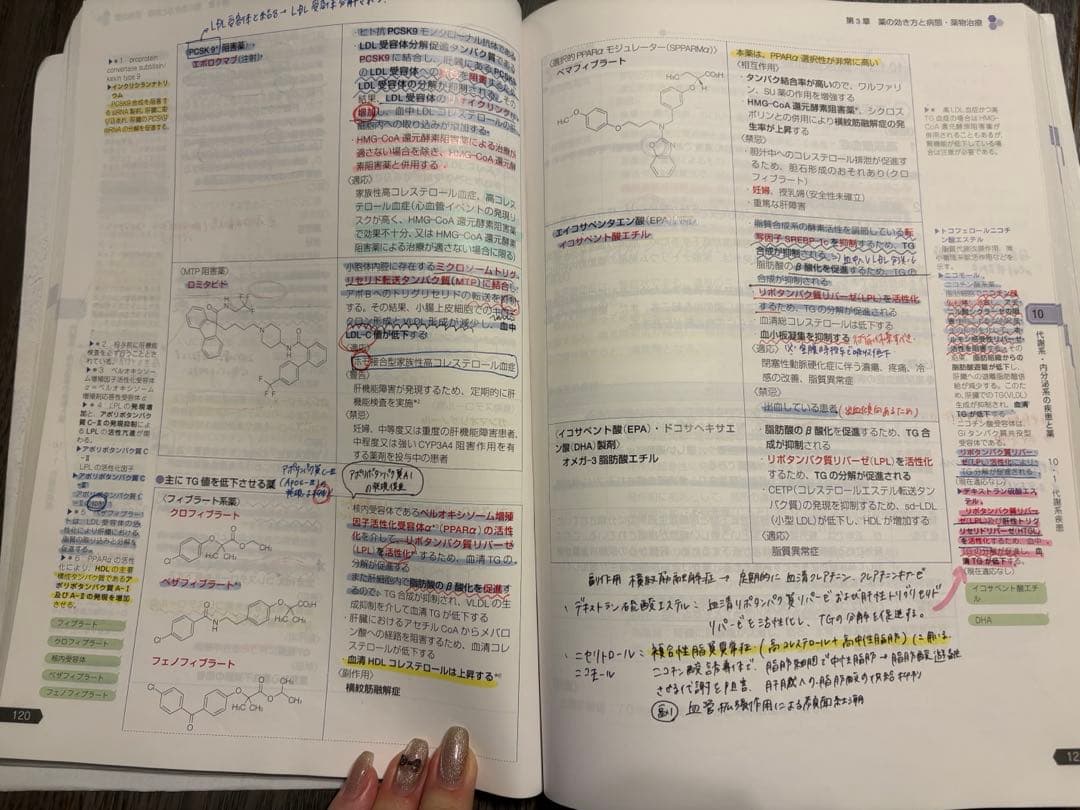 第3章 薬の効き方と病態・薬物治療
LDL受容体と結合→LDL受容体分解される
▶*1 proprotein
convertase subtilisin/
kexin type 9
▶インクリシランナトリ
ウム
PCSK9合成を阻害す
〈PCSK9*¹阻害薬〉
エボロクマブ（注射）
・ヒト抗PCSK9モノクローナル抗体であ
LDL受容体分解促進タンパク質である
PCSK9に結合し、
LDL受容体への
LDL受容体の分解が抑制される。その
結果、LDL受容体の
増加し、血中LDLコレステロールの肝
臓内への取り込みが増加する。
・HMG-CoA還元酵素阻害薬による治療が
適さない場合を除き、HMG-CoA還元酵
素阻害薬と併用する。
〈適応〉
家族性高コレステロール血症、高コレス
テロール血症（心血管イベントの発現リ
スクが高く、HMG-CoA還元酵素阻害薬
で効果不十分、又はHMG-CoA還元酵素
阻害薬による治療が適さない場合に限る）
〈MTP阻害薬〉
ロミタピド
小胞体内腔に存在するミクロソームトリグ
リセリド転送タンパク質（MTP）に結合し、
アポBへのトリグリセリドの転送を抑制
する。その結果、小腸上皮細胞での
クロン形成とVLDL形成が減少し、血中
LDL-C値が低下する
〈適応〉
ホモ接合型家族性高コレステロール血症
〈警告〉
肝機能障害が発現するため、定期的に肝
機能検査を実施*²
〈禁忌〉
妊婦、中等度又は重度の肝機能障害患者、
中程度又は強いCYP3A4阻害作用を有
する薬剤を投与中の患者
▶*2 投与前に肝機能
検査を必ず行うこととさ
れている。
▶*3 ペルオキシソ
ーム増殖因子活性化受容体
▶*4 LPLの発現増
加と、アポリポタンパク
質C-Ⅲの発現抑制によ
るLPLの活性亢進が関
わる。
▶アポリポタンパク質C
-Ⅱ
LPLの活性化因子
▶アポリポタンパク質C
▶*6 PPARαの活性
化により、HDLの主要
構成タンパク質であるア
ポリポタンパク質A-Ⅰ
及びA-Ⅱの発現を増加
させる。
フィブラート
クロフィブラート
核内受容体
ベザフィブラート
フェノフィブラート
120
●主にTG値を低下させる薬
アポタンパク質C-Ⅲ
(APOC-Ⅲ)の
発現↓抑制
アポリポタンパク質A1
の発現促進
〈フィブラート系薬〉
クロフィブラート
ベザフィブラート*⁵
フェノフィブラート
・核内受容体であるペルオキシソーム増殖
因子活性化受容体α*³（PPARα）の活性
化を介して、リポタンパク質リパーゼ
（LPL）を活性化*⁴するため、血清TGの
分解が促進する
・また肝細胞内で脂肪酸のβ酸化を促進す
るので、TG合成が抑制され、VLDLの生
成抑制を介して血清TGが低下する
・肝臓におけるアセチルCoAからメバロ
ン酸への経路を阻害するため、血清コレス
テロールが低下する
・血清HDLコレステロールは上昇する*⁶
〈副作用〉
横紋筋融解症
〈選択的PPARαモジュレーター（SPPARMα）〉
ペマフィブラート
本薬は、PPARα選択性が非常に高い
〈相互作用〉
・タンパク結合率が高いので、ワルファリ
ン、SU薬の作用を増強する
・HMG-CoA還元酵素阻害薬*、シクロス
ポリンとの併用により横紋筋融解症の発
生率が上昇する
〈禁忌〉
・胆汁中へのコレステロール排泄が促進す
るため、胆石形成のおそれあり（クロ
フィブラート）
・妊婦、授乳婦（安全性未確立）
・重篤な肝障害
〈エイコサペンタエン酸（EPA）〉
イコサペント酸エチル
・脂質合成系の酵素活性を調節している転
写因子SREBP-1cを抑制するため、TG
合成が抑制される
・脂肪酸のβ酸化を促進するため、TGの
合成が抑制される
・リポタンパク質リパーゼ（LPL）を活性化
するため、TGの分解が促進される
・血清総コレステロールは低下する
・血小板凝集を抑制する
〈適応〉
閉塞性動脈硬化症に伴う潰瘍、疼痛、冷
感の改善、脂質異常症
〈禁忌〉
出血している患者（出血傾向あるため）
〈イコサペント酸（EPA）・ドコサヘキサエ
ン酸（DHA）製剤〉
オメガ-3脂肪酸エチル
・脂肪酸のβ酸化を促進するため、TG合
成が抑制される
・リポタンパク質リパーゼ（LPL）を活性化
するため、TGの分解が促進される
・CETP（コレステロールエステル転送タン
パク質）の発現を抑制するため、sd-LDL
（小型LDL）が低下し、HDLが増加する
〈適応〉
脂質異常症
▶* 高LDL血症かつ高
TG血症の場合はHMG-
CoA還元酵素阻害薬が
併用されることもあるが、
腎機能が低下している場
合は注意が必要である。
▶トコフェロールニコチ
ン酸エステル
▶ニコモール、
ニコチン酸受容体は、
Giタンパク質共役型
受容体である。
リポタンパク質リパー
ゼ（LPL）活性化により
TGの分解が促進される
（現在適応なし）
▶デキストラン硫酸エス
テル
リポタンパク質リパーゼ
（LPL）及び肝性トリグ
リセリドリパーゼ（HTGL）
を活性化するため、血中
TGの分解が促進し、血
清TGが低下する。
（現在適応なし）
イコサペント酸エチ
ル
DHA
10
代謝系・内分泌系の疾患と薬
10・1 代謝系疾患
副作用 横紋筋融解症→定期的に血清クレアチニン、クレアチンキナーゼ
・デキストラン硫酸エステル：血清リポタンパク質リパーゼおよび肝性トリグリセリド
リパーゼを活性化し、TGの分解を促進する。
・ニセリトロール：複合性脂質異常症（高コレステロール＋高中性脂肪）に用いる
ニコモール ニコチン酸誘導体で、脂肪細胞で中性脂肪→脂肪酸遊離
させる代謝を阻害、肝臓への脂肪酸の供給抑制
副 血管拡張作用による顔面紅潮